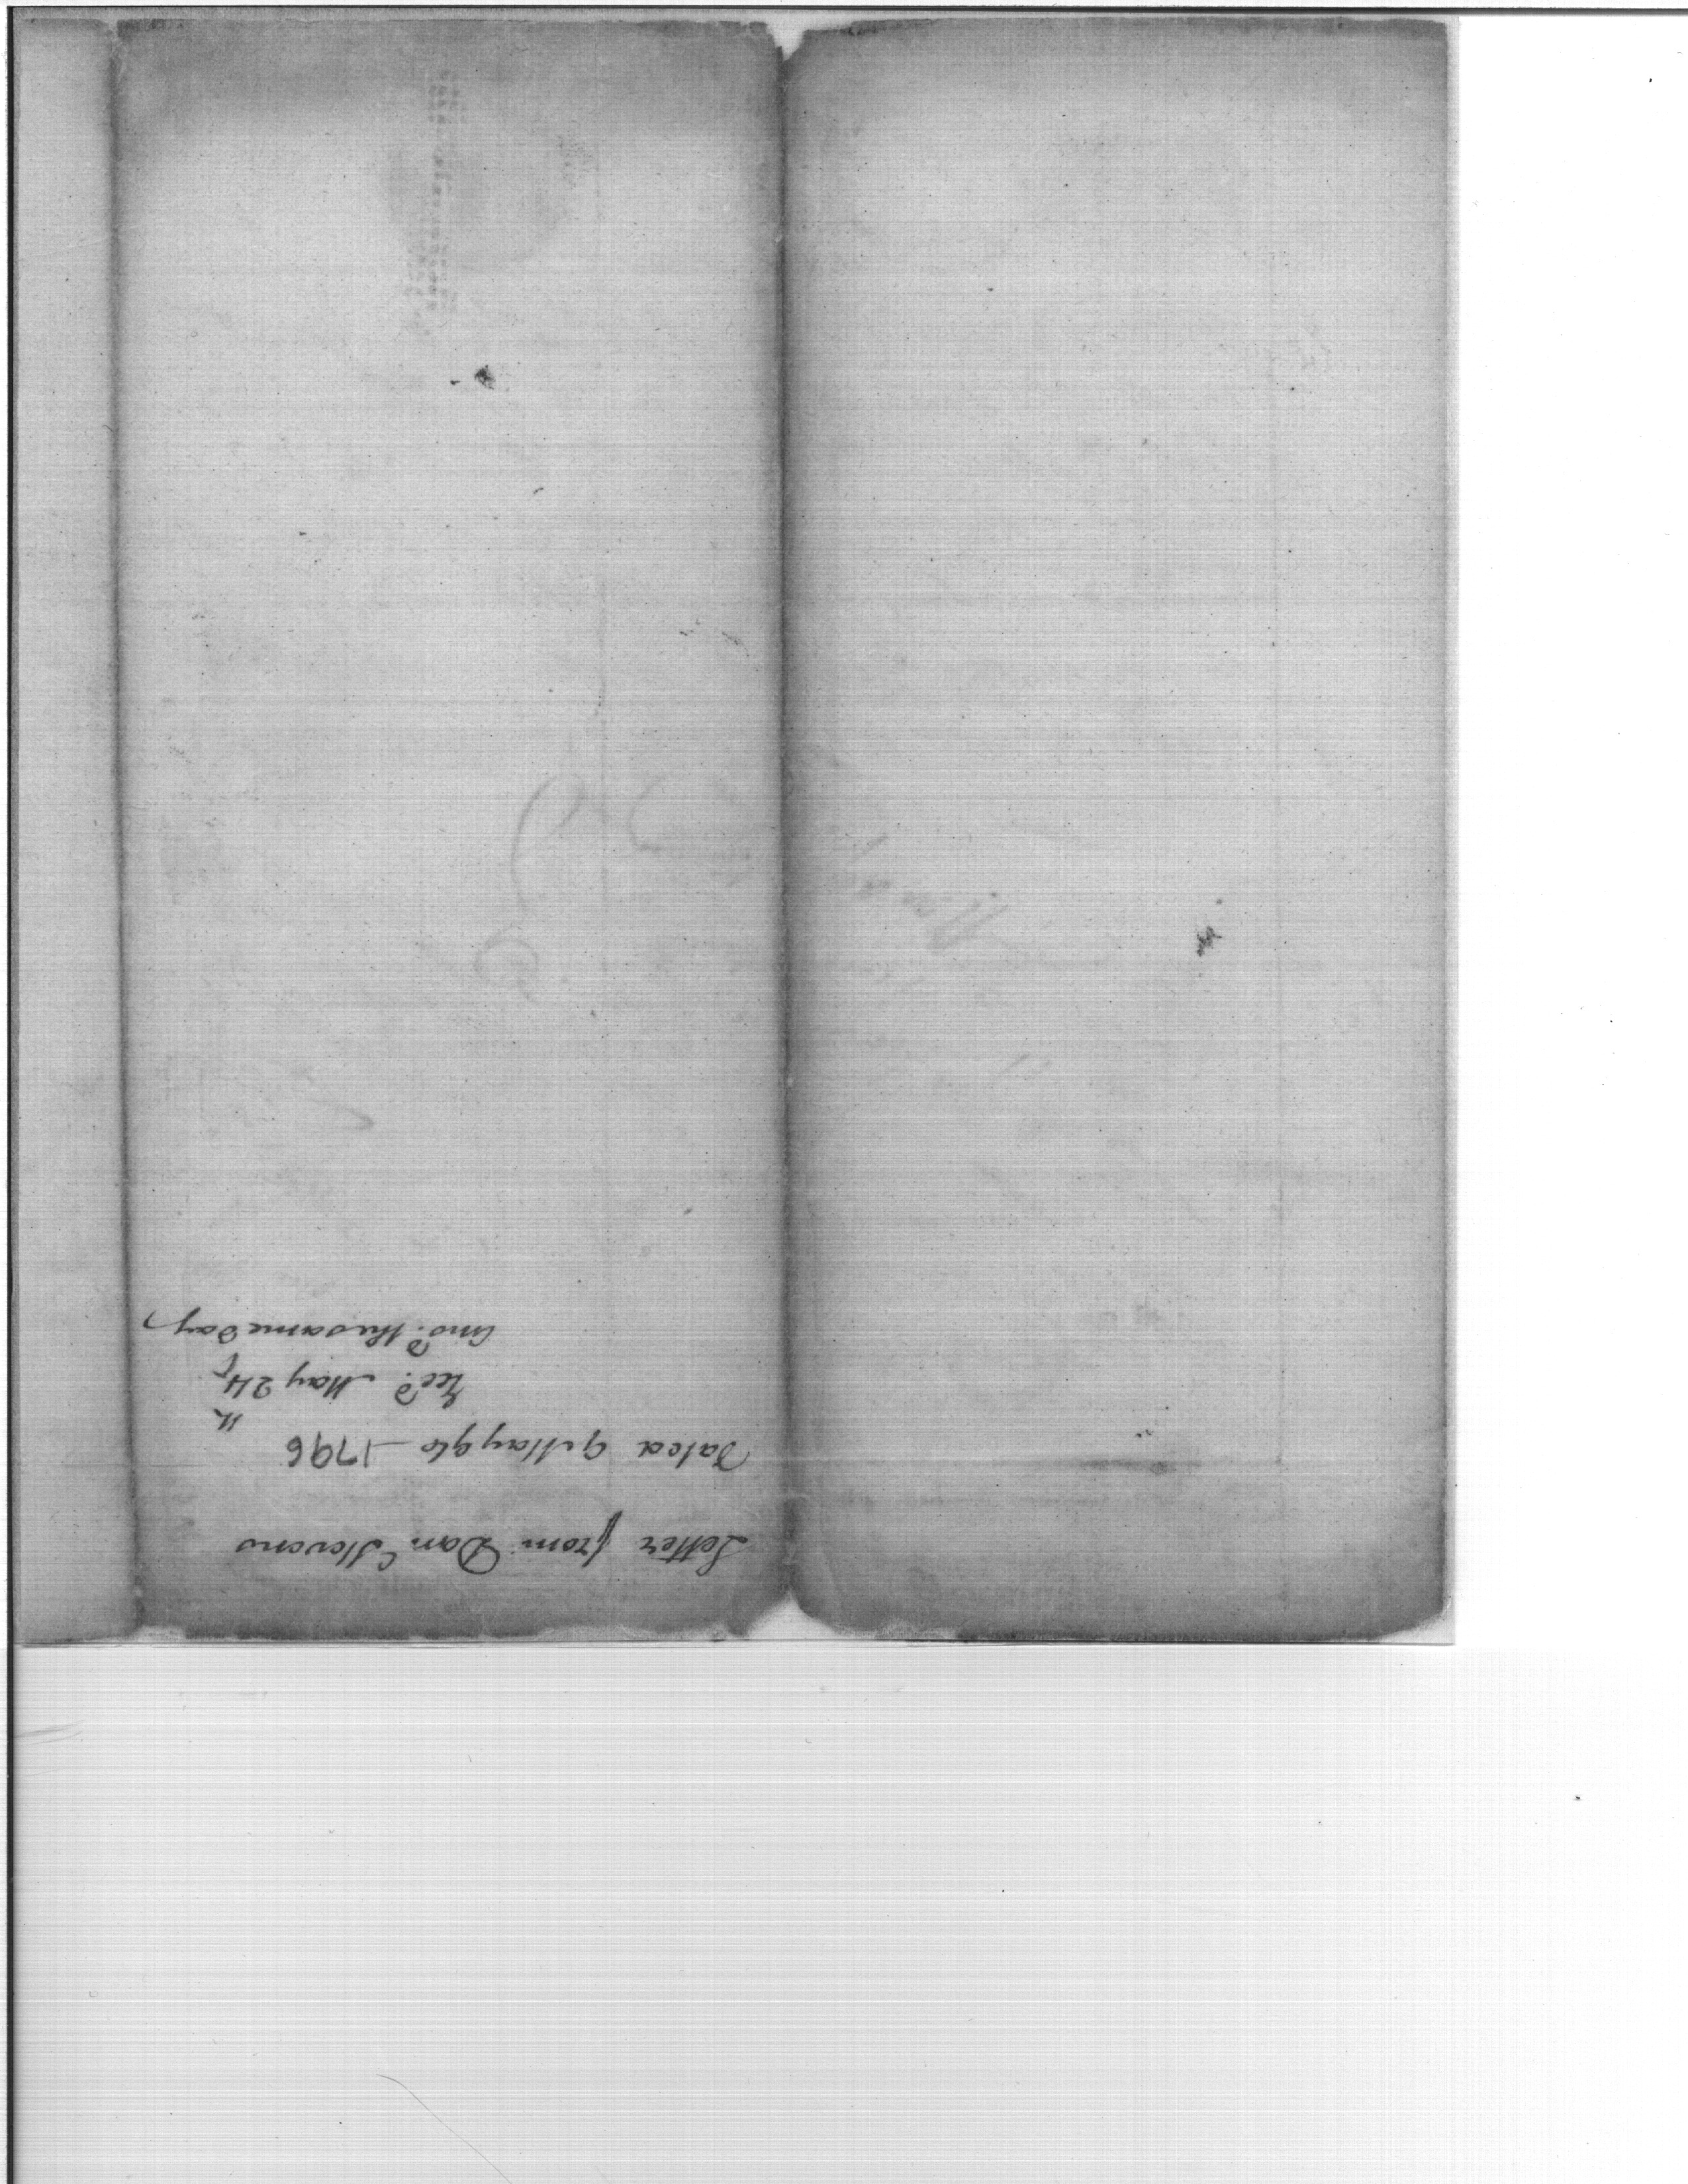 Letter from Dan Stevens
Dated 9 May 96 1796
Rec.d May 24th
Ans.d the same day